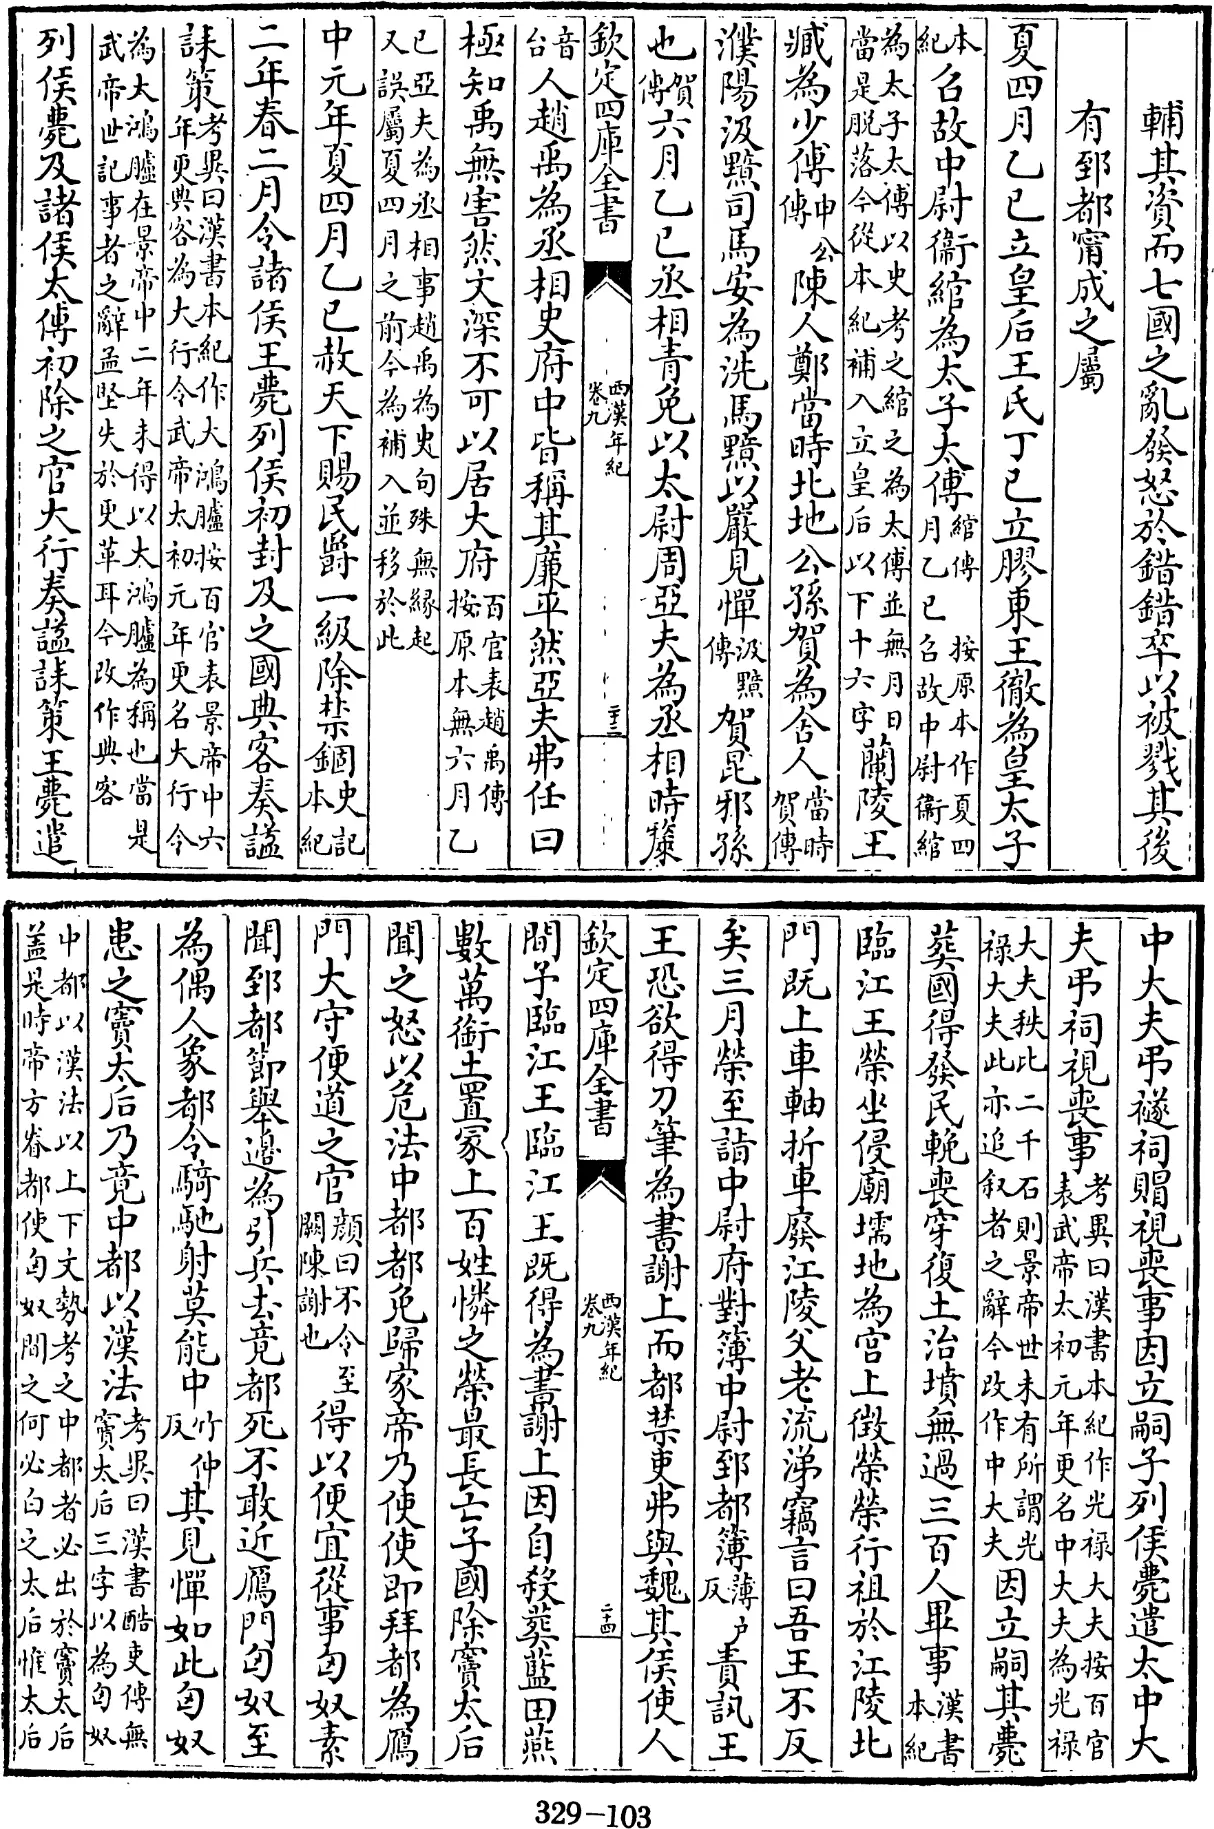 輔其資而七國之亂發怒於錯錯卒以被戮其後
有郅都甯成之屬
夏四月乙巳立皇后王氏丁巳立膠東王徹為皇太子
本紀召故中尉衞綰為太子太傅綰傳 按原本作夏四月乙巳召故中尉衞綰
為太子太傅以史考之綰之為太傅並無月日當是脱落今從本紀補入立皇后以下十六字蘭陵王
臧為少傅申公傳陳人鄭當時北地公孫賀為舍人當時賀傳
濮陽汲黯司馬安為洗馬黯以嚴見憚汲黯傳賀昆邪孫
也賀傳六月乙巳丞相青免以太尉周亞夫為丞相時斄
欽定四庫全書
西漢年紀
卷九
二十三
音台人趙禹為丞相史府中皆稱其廉平然亞夫弗任曰
極知禹無害然文深不可以居大府百官表趙禹傳 按原本無六月乙
巳亞夫為丞相事趙禹為史句殊無緣起又誤屬夏四月之前今為補入並移於此
中元年夏四月乙巳赦天下賜民爵一級除禁錮史記本紀
二年春二月令諸侯王薨列侯初封及之國典客奏諡
誄策考異曰漢書本紀作大鴻臚按百官表景帝中六年更典客為大行令武帝太初元年更名大行令
為大鴻臚在景帝中二年未得以大鴻臚為稱也當是武帝世記事者之辭孟堅失於更革耳今改作典客
列侯薨及諸侯太傅初除之官大行奏諡誄策王薨遣
中大夫弔襚祠賵視喪事因立嗣子列侯薨遣太中大
夫弔祠視喪事考異曰漢書本紀作光禄大夫按百官表武帝太初元年更名中大夫為光禄
大夫秩比二千石則景帝世未有所謂光禄大夫此亦追叙者之辭今改作中大夫因立嗣其薨
葬國得發民輓喪穿復土治墳無過三百人畢事漢書本紀
臨江王榮坐侵廟壖地為宫上徴榮榮行祖於江陵北
門既上車軸折車廢江陵父老流涕竊言曰吾王不反
矣三月榮至詣中尉府對簿中尉郅都簿薄户反責訊王
王恐欲得刀筆為書謝上而都禁吏弗與魏其侯使人
欽定四庫全書
西漢年紀
卷九
二十四
間予臨江王臨江王既得為書謝上因自殺葬藍田燕
數萬銜土置冢上百姓憐之榮最長亡子國除竇太后
聞之怒以危法中都都免歸家帝乃使使即拜都為鴈
門大守便道之官顔曰不令至闕陳謝也得以便宜從事匈奴素
聞郅都節舉邊為引兵去竟都死不敢近鴈門匈奴至
為偶人象都令騎馳射莫能中竹仲反其見憚如此匈奴
患之竇太后乃竟中都以漢法考異曰漢書酷吏傳無竇太后三字以為匈奴
中都以漢法以上下文勢考之中都者必出於竇太后盖是時帝方眷都使匈奴間之何必白之太后惟太后
329-103